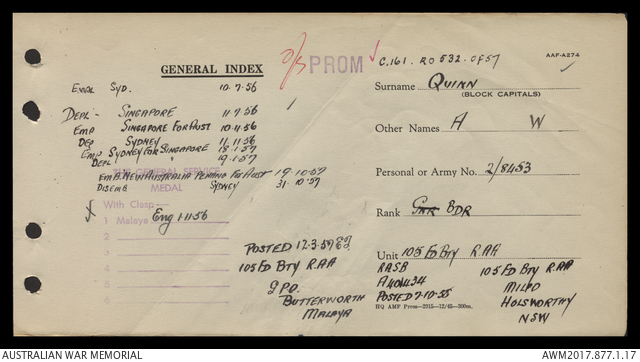 PROM
C.161. RO 532. OF57
AAF-A274
GENERAL INDEX
Surname QUINN
(BLOCK CAPITALS)
Other Names A W
Personal or Army No. 2/8453
Rank GNR BDR
Unit 105 FD BTY RAA
EMB. SYD. 10.7.56
DEPL - SINGAPORE 11.7.56
EMP SINGAPORE FOR AUST 10.11.56
DEP SYDNEY 11.11.56
EMP SYDNEY FOR SINGAPORE 18.1.57
DEPL " 19.1.57
THE GENERAL SERVICE
MEDAL
EMB. NEW AUSTRALIA PENANG FOR AUST 19.10.57
DISEMB SYDNEY 31.10.57
With Clasp:-
1 Malaya Eng 1.11.56
2
3
4
5
POSTED 12.3.57
105 FD BTY RAA
GPO
BUTTERWORTH
MALAYA
RASB
A404434
POSTED 7.10.55
HQ AMF Press—2015—12/45—300m.
105 FD BTY RAA
MILPO
HOLSWORTHY
NSW
AUSTRALIAN WAR MEMORIAL
AWM2017.877.1.17